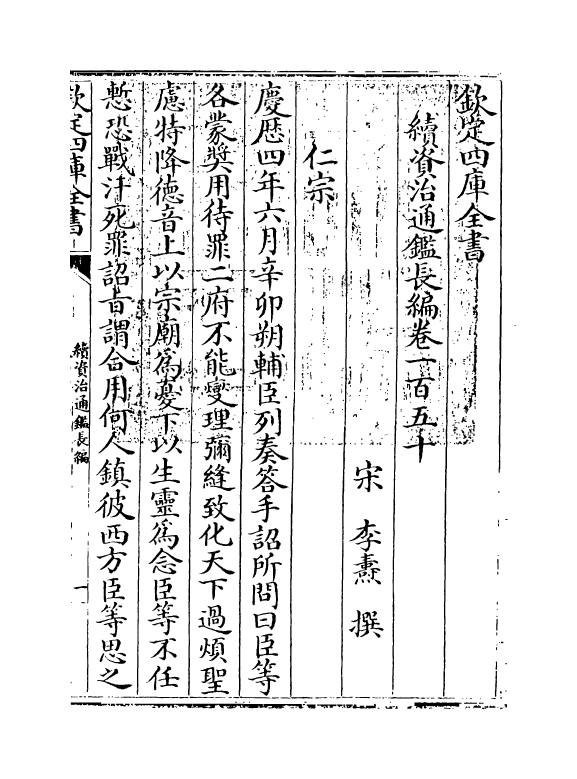 欽定四庫全書
續資治通鑑長編卷一百五十
宋 李燾 撰
仁宗
慶厯四年六月辛卯朔輔臣列奏答手詔所問曰臣等
各蒙奨用待罪二府不能燮理彌縫致化天下過煩聖
慮特降德音上以宗廟為憂下以生靈為念臣等不任
慙恐戰汗死罪詔旨謂合用何人鎮彼西方臣等思之
欽定四庫全書
續資治通鑑長編
一